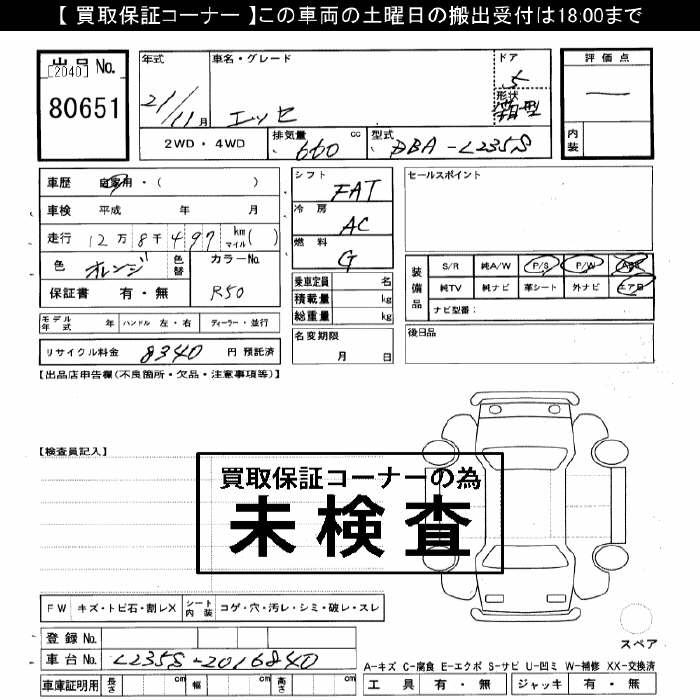 【 買取保証コーナー 】この車両の土曜日の搬出受付は18:00まで
出品No.
[2040]
80651
年式 車名・グレード ドア
21/11月 エッセ 5
形状 箱型
2WD・4WD 排気量 660 cc 型式 DBA-L235S
評価点
—
内装
車歴 自家用・( )
車検 平成 年 月
走行 12万8千497 km マイル ( )
色 オレンジ 色替 カラーNo. R50
保証書 有・無
モデル年式 年 ハンドル 左・右 ディーラー・並行
リサイクル料金 8340 円 預託済
シフト FAT
冷房 AC
燃料 G
乗車定員 名
積載量 kg
総重量 kg
名変期限 月 日
セールスポイント
装備品 S/R 純A/W P/S P/W ABS
純TV 純ナビ 革シート 外ナビ エアB
ナビ型番:
後日品
【出品店申告欄(不良箇所・欠品・注意事項等)】
【検査員記入】
買取保証コーナーの為
未検査
FW キズ・トビ石・割レX シート内装 コゲ・穴・汚レ・シミ・破レ・スレ
スペア
登録No.
車台No. L235S-2016840
車庫証明用 長さ cm 幅 cm 高さ cm
A-キズ C-腐食 E-エクボ S-サビ U-凹ミ W-補修 XX-交換済
工具 有・無 ジャッキ 有・無